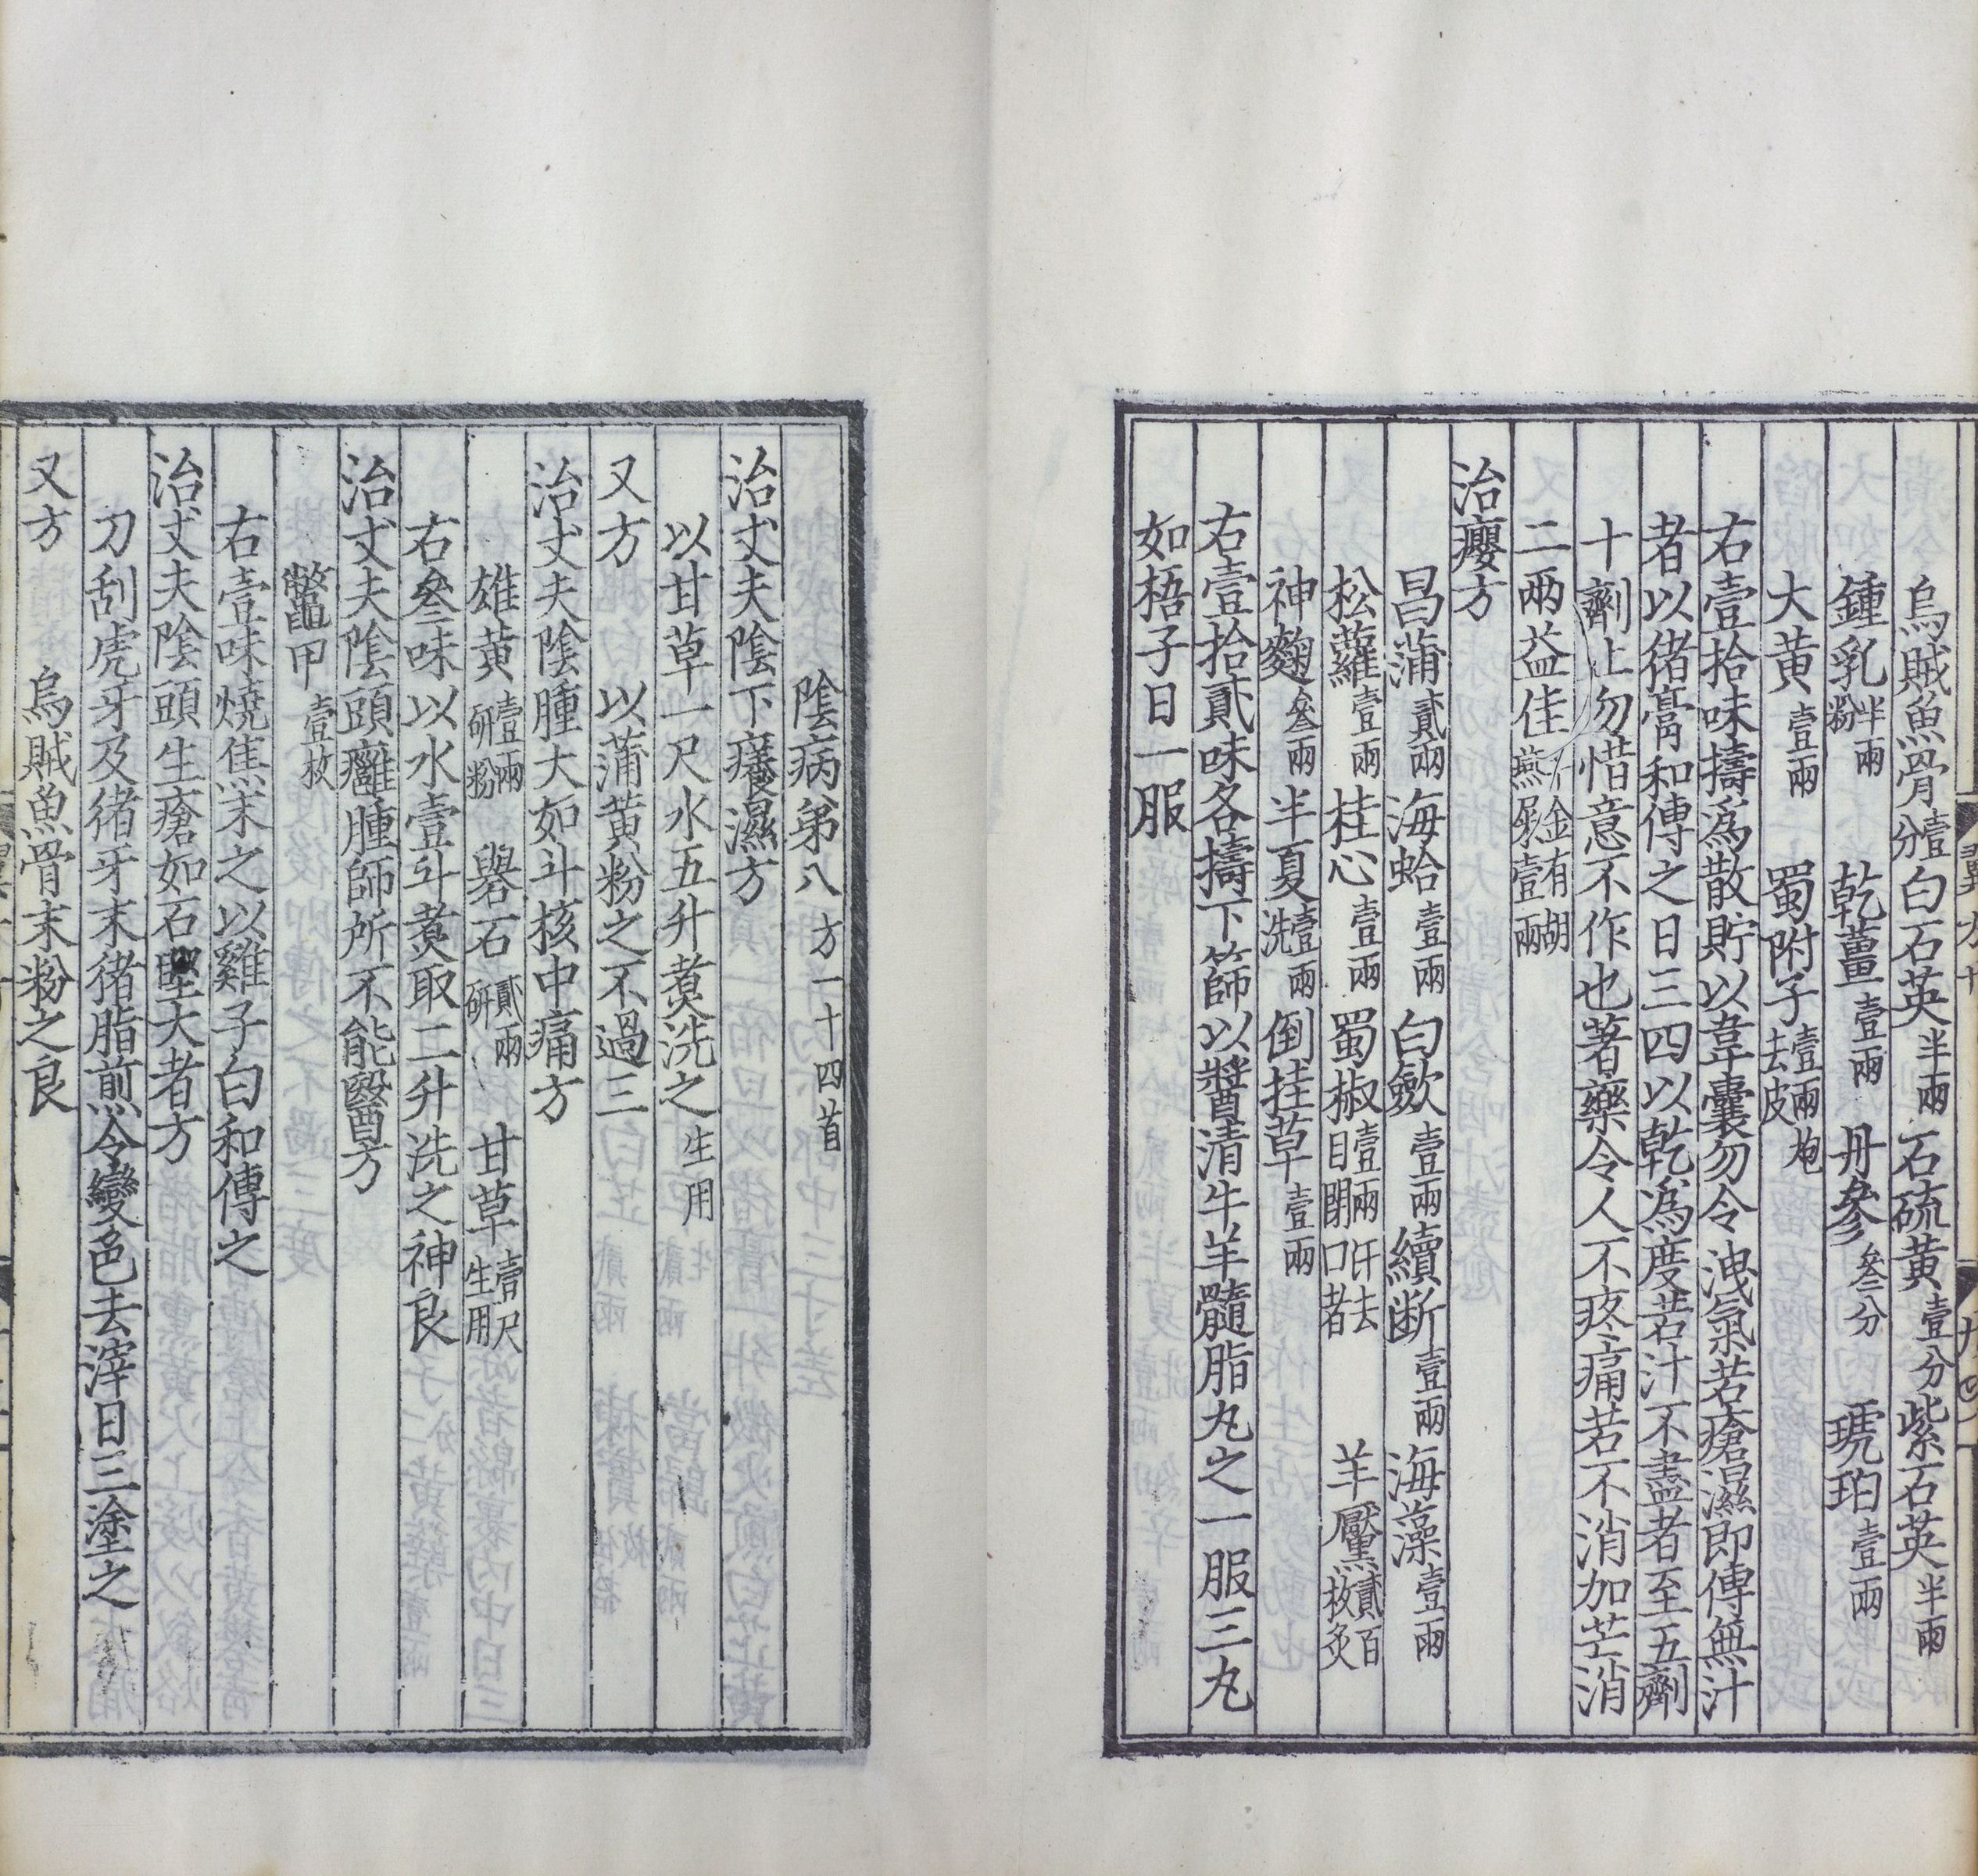 烏賊魚骨壹分白石英半兩石硫黃壹分紫石英半兩
鍾乳半兩粉乾薑壹兩丹參叄分琥珀壹兩
大黃壹兩蜀附子壹兩炮去皮
右壹拾味擣爲散貯以韋囊勿令洩氣若瘡濕即傅無汁
者以猪膏和傅之日三四以乾爲度若汁不盡者至五劑
十劑止勿惜意不作也著藥令人不疼痛若不消加芒消
二兩益佳千金有胡燕屎壹兩
治癭方
昌蒲貳兩海蛤壹兩白斂壹兩續斷壹兩海藻壹兩
松蘿壹兩桂心壹兩蜀椒壹兩汗去目閉口者羊靨貳百枚炙
神麴叄兩半夏壹兩洗倒挂草壹兩
右壹拾貳味各擣下篩以醬清牛羊髓脂丸之一服三丸
如梧子日一服
陰病第八方一十四首
治丈夫陰下癢濕方
以甘草一尺水五升煑洗之生用
又方以蒲黃粉之不過三
治丈夫陰腫大如斗核中痛方
雄黃壹兩研粉礬石貳兩研甘草壹尺生用
右叄味以水壹斗煑取二升洗之神良
治丈夫陰頭癰腫師所不能醫方
鼈甲壹枚
右壹味燒焦末之以雞子白和傅之
治丈夫陰頭生瘡如石堅大者方
刀刮虎牙及猪牙末猪脂煎令變色去滓日三塗之
又方烏賊魚骨末粉之良